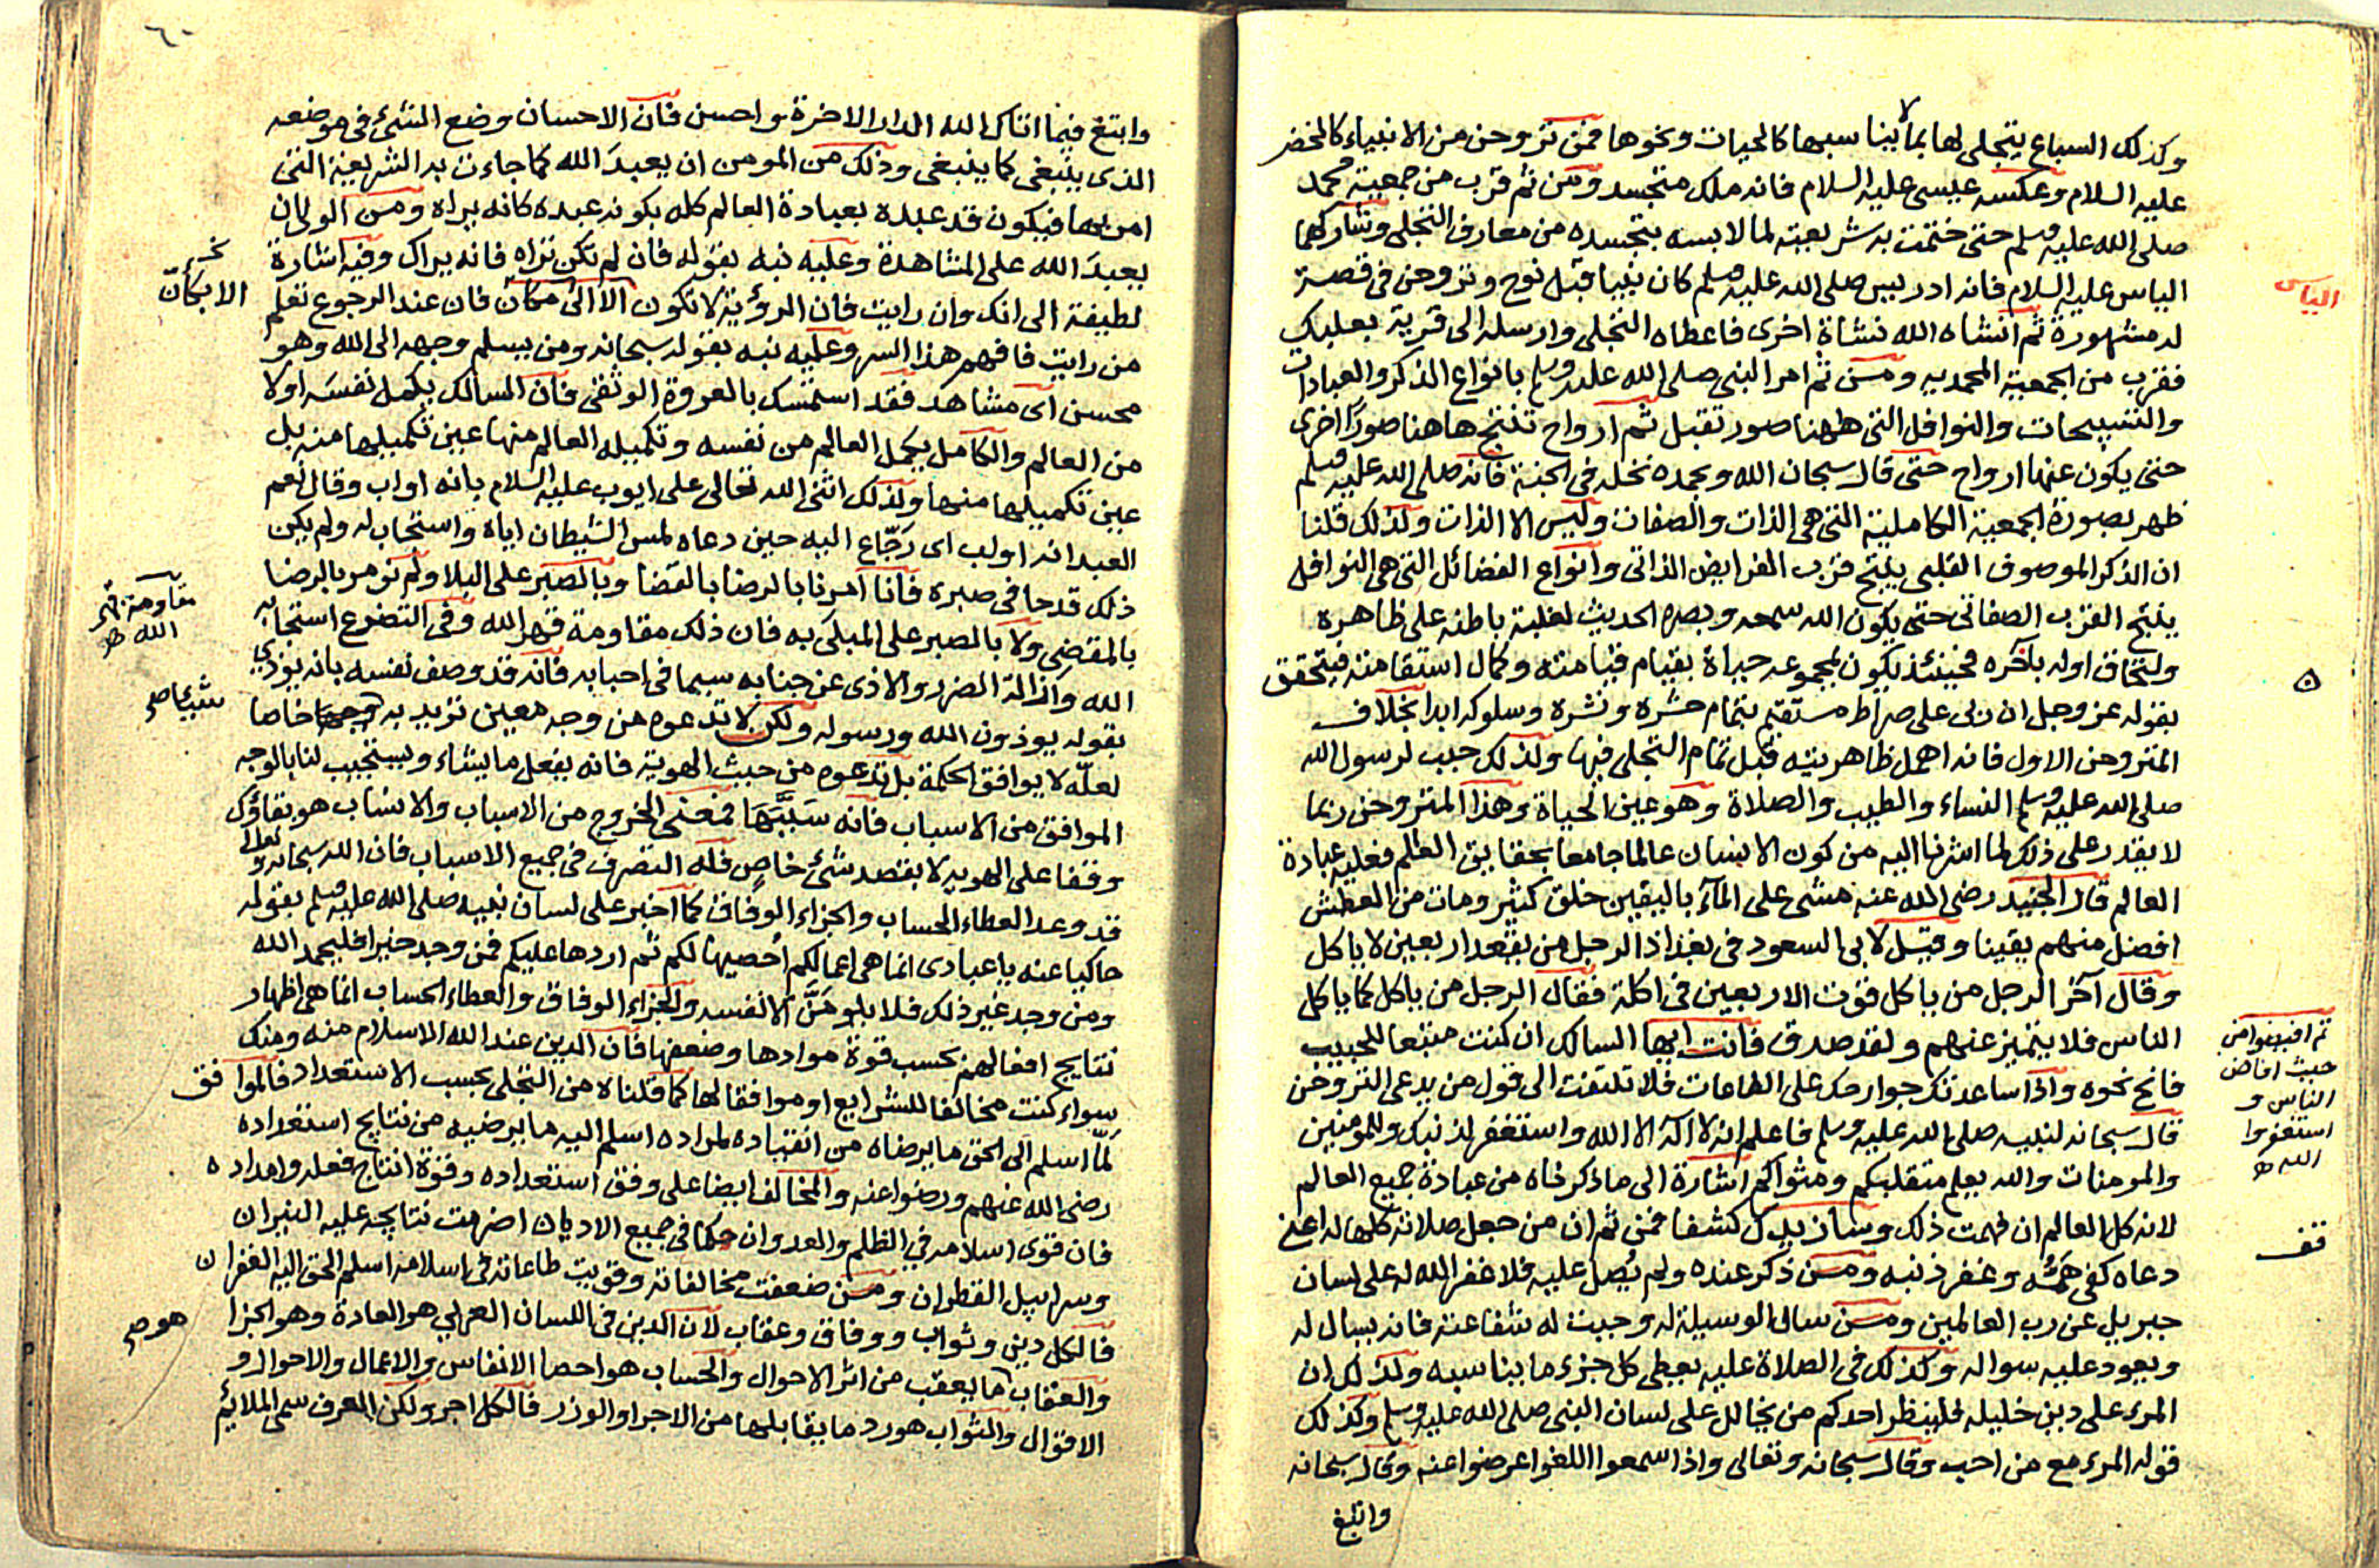 وكذلك السباع يتجلى لها بما لا يناسبها كالحيات ونحوها فمن تروحن من الانبياء كالخضر
عليه السلام وعكسه عيسى عليه السلام فانه ملك متجسد ومن ثم قرب من جمعية محمد
صلى الله عليه وسلم حتى ختمت به شريعته لما لابسه بتجسده من معارف التجلى وتشاركهما
الياس عليه السلام فانه ادريس صلى الله عليه وسلم كان نبيا قبل نوح وتروحن فى قصة
الياس
له مشهورة ثم انشاه الله نشاة اخرى فاعطاه التجلى وارسله الى قرية بعلبك
فقرب من الجمعية المحمديه ومن ثم امر النبى صلى الله عليه وسلم بانواع الذكر والعبادات
والتسبيحات والنوافل التى ههنا صور تقبل ثم ارواح تنتج هاهنا صورا اخرى
حتى يكون عنها ارواح حتى قال سبحان الله وبحمده نخله فى الجنة فانه صلى الله عليه وسلم
ظهر بصورة الجمعية الكاملية التى هى الذات والصفات وليس الا الذات ولذلك قلنا
ان الذكر الموصوف القلبى ينتج قرب الفرايض الذاتى وانواع الفضائل التى هى النوافل
ينتج القرب الصفاتى حتى يكون الله سمعه وبصره الحديث لغلبة باطنه على ظاهره
ولتحاق اوله بآخره فحينئذ يكون لمجموعه حياة بقيام قيامته وكمال استقامته فيتحقق
بقوله عز وجل ان ربى على صراط مستقيم بتمام حشره ونشره وسلوكه ابدا بخلاف
المتروحن الاول فانه اهمل ظاهريته قبل تمام التجلى فيها ولذلك حبب لرسول الله
صلى الله عليه وسلم النساء والطيب والصلاة وهو عين الحياة وهذا المتروحن ربما
لا يقدر على ذلك لما اشرنا اليه من كون الانسان عالما جامعا بحقايق العالم فعليه عبادة
العالم قال الجنيد رضى الله عنه مشى على المآء باليقين خلق كثير ومات من العطش
افضل منهم يقينا وقيل لابى السعود فى بغداد الرجل من يقعد اربعين لا ياكل
وقال آخر الرجل من ياكل قوت الاربعين فى اكلة فقال الرجل من ياكل كما ياكل
الناس فلا يتميز عنهم ولقد صدق فانت ايها السالك ان كنت متبعا للحبيب
ثم افيضوا من
حيث افاض
الناس و
استغفروا
الله
فانح نحوه واذا ساعدتك جوارحك على الطاعات فلا تلتفت الى قول من يدعى التروحن
قال سبحانه لنبيه صلى الله عليه وسلم فاعلم انه لا آله الا الله واستغفر لذنبك وللمومنين
والمومنات والله يعلم متقلبكم ومثواكم اشارة الى ما ذكرناه من عبادة جميع العالم
لانه كل العالم ان فهمت ذلك وسانزيدك كشفا فمن ثم ان من جعل صلاته كلها له اعنى
قف
دعاه كفى همه وغفر ذنبه ومن ذكر عنده ولم يُصل عليه فلا غفر الله له على لسان
جبريل عن رب العالمين ومن سال الوسيلة له وجبت له شفاعته فانه يسال له
ويعود عليه سواله وكذلك فى الصلاة عليه يعطى كل جزء ما يناسبه ولذلك ان
المرء على دين خليله فلينظر احدكم من يخالل على لسان النبى صلى الله عليه وسلم وكذلك
قوله المرء مع من احب وقال سبحانه وتعالى واذا سمعوا اللغو اعرضوا عنه وقال سبحانه
وابتغ
٦٠
وابتغ فيما اتاك الله الدار الاخرة واحسن فان الاحسان وضع الشئ فى موضعه
الذى ينبغى كما ينبغى وذلك من المومن ان يعبد الله كما جاءت به الشريعة التى
امن بها فيكون قد عبده بعبادة العالم كله بكونه عبده كانه يراه ومن الولى ان
يعبد الله على المشاهدة وعليه نبه بقوله فان لم تكن تراه فانه يراك وفيه اشارة
لطيفة الى انك وان رايت فان الروية لا تكون الا الى مكان فان عند الرجوع تعلم
نخـ
الا بكانّ
من رايت فافهم هذا السر وعليه نبه بقوله سبحانه ومن يسلم وجهه الى الله وهو
محسن اى مشاهد فقد استمسك بالعروة الوثقى فان السالك يكمل نفسه اولا
من العالم والكامل يكمل العالم من نفسه وتكميله العالم منها عين تكميلها منه بل
عين تكميلها منها ولذلك اثنى الله تعالى على ايوب عليه السلام بانه اواب وقال نعم
العبد انه اواب اى رجّاع اليه حين دعاه لمس الشيطان اياه واستجاب له ولم يكن
ذلك قدحا فى صبره فانا امرنا بالرضا بالقضا وبالصبر على البلا ولم نومر بالرضا
بالمقضى ولا بالصبر على المبلى به فان ذلك مقاومة قهر الله وفى التضرع استجابه
مقاومة قهر
الله
الله واذالة الضرر والاذى عن جنابه سيما فى احبابه فانه قد وصف نفسه بانه يوذى
بقوله يوذون الله ورسوله ولكن لا تدعوه من وجه معين تريد به وجها خاصا
شيئا صح
لعلّه لا يوافق الحكمة بل تدعوه من حيث الهوية فانه يفعل ما يشاء ويستجيب لنا بالوجه
الموافق من الاسباب فانه سَبَّبَهَا فمعنى الخروج من الاسباب والانساب هو بقاؤك
وقفا على الهويه لا بقصد شئ خاص فله التصرف فى جميع الاسباب فان الله سبحانه وتعالى
قد وعد العطاء الحساب والجزاء الوفاق كما اخبر على لسان نبيه صلى الله عليه وسلم بقوله
حاكيا عنه ياعبادى انما هى اعمالكم احصيها لكم ثم اردها عليكم فمن وجد خيرا فليحمد الله
ومن وجد غير ذلك فلا يلومَنَّ الا نفسه والجزاء الوفاق والعطاء الحساب انما هى اظهار
نتايج افعالهم بحسب قوة موادها وضعفها فان الدين عند الله الاسلام منه ومنك
سواء كنت مخالفا للشرايع او موافقا لها كما قلناه من التجلى بحسب الاستعداد فالموافق
لمّا اسلم الى الحق ما يرضاه من انقياده لمراده اسلم اليه ما يرضيه من نتايج استعداده
رضى الله عنهم ورضوا عنه والمخالف ايضا على وفق استعداده وقوة انتاج فعله وامداده
فان قوى اسلامه فى الظلم والعدوان حكما فى جميع الاديان اضرمت نتايجه عليه النيران
وسرابيل القطران ومن ضعفت مخالفاته وقويت طاعاته فى اسلامه اسلم الحق اليه الغفران
فالكل دين وثواب ووفاق وعقاب لان الدين فى اللسان العربى هو العادة وهو الجزا
هو صح
والعقاب ما يعقب من اثر الاحوال والحساب هو احصا الانفاس والاعمال والاحوال و
الاقوال والثواب هو رد ما يقابلها من الاجر او الوزر فالكل اجر ولكن العرف سمى الملائم